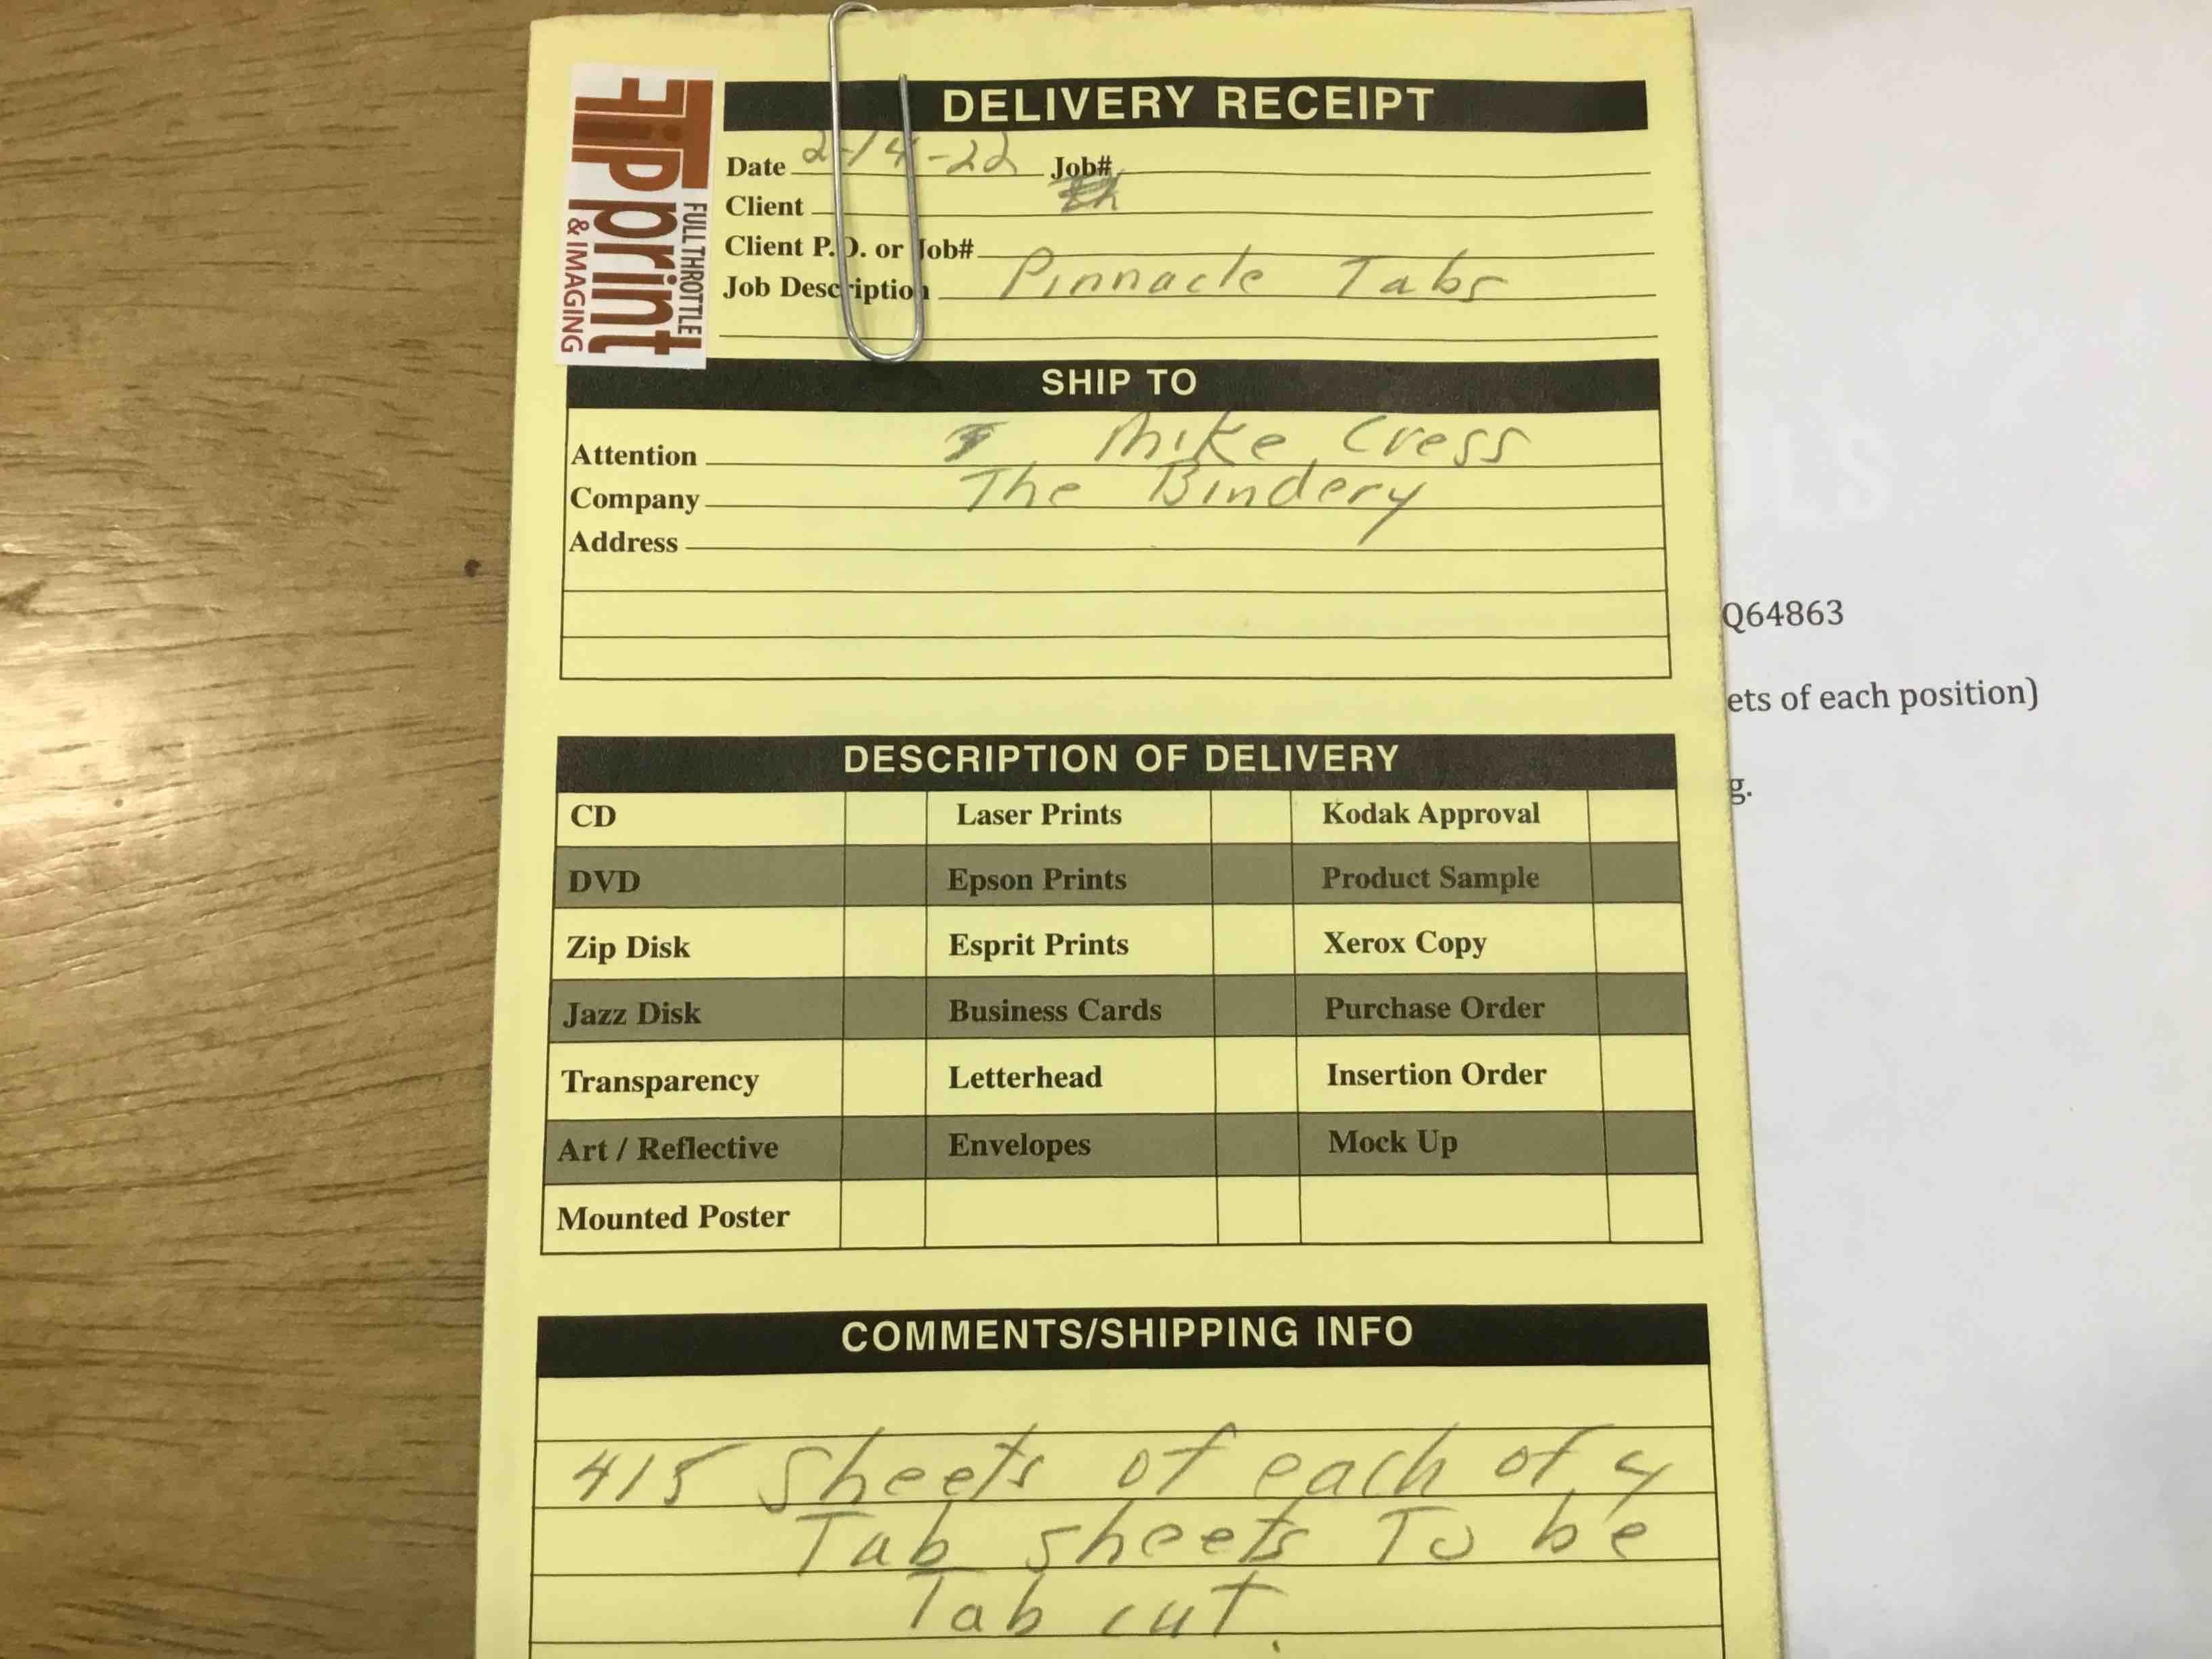 DELIVERY RECEIPT
FTP print
FULL THROTTLE
& IMAGING
Date 2-14-22 Job#
Client
Client P.O. or Job#
Job Description Pinnacle Tabs
SHIP TO
Attention Mike Cress
Company The Bindery
Address
Q64863
ets of each position)
g.
DESCRIPTION OF DELIVERY
CD Laser Prints Kodak Approval
DVD Epson Prints Product Sample
Zip Disk Esprit Prints Xerox Copy
Jazz Disk Business Cards Purchase Order
Transparency Letterhead Insertion Order
Art / Reflective Envelopes Mock Up
Mounted Poster
COMMENTS/SHIPPING INFO
415 Sheets of each of 4
Tab sheets To be
Tab cut.